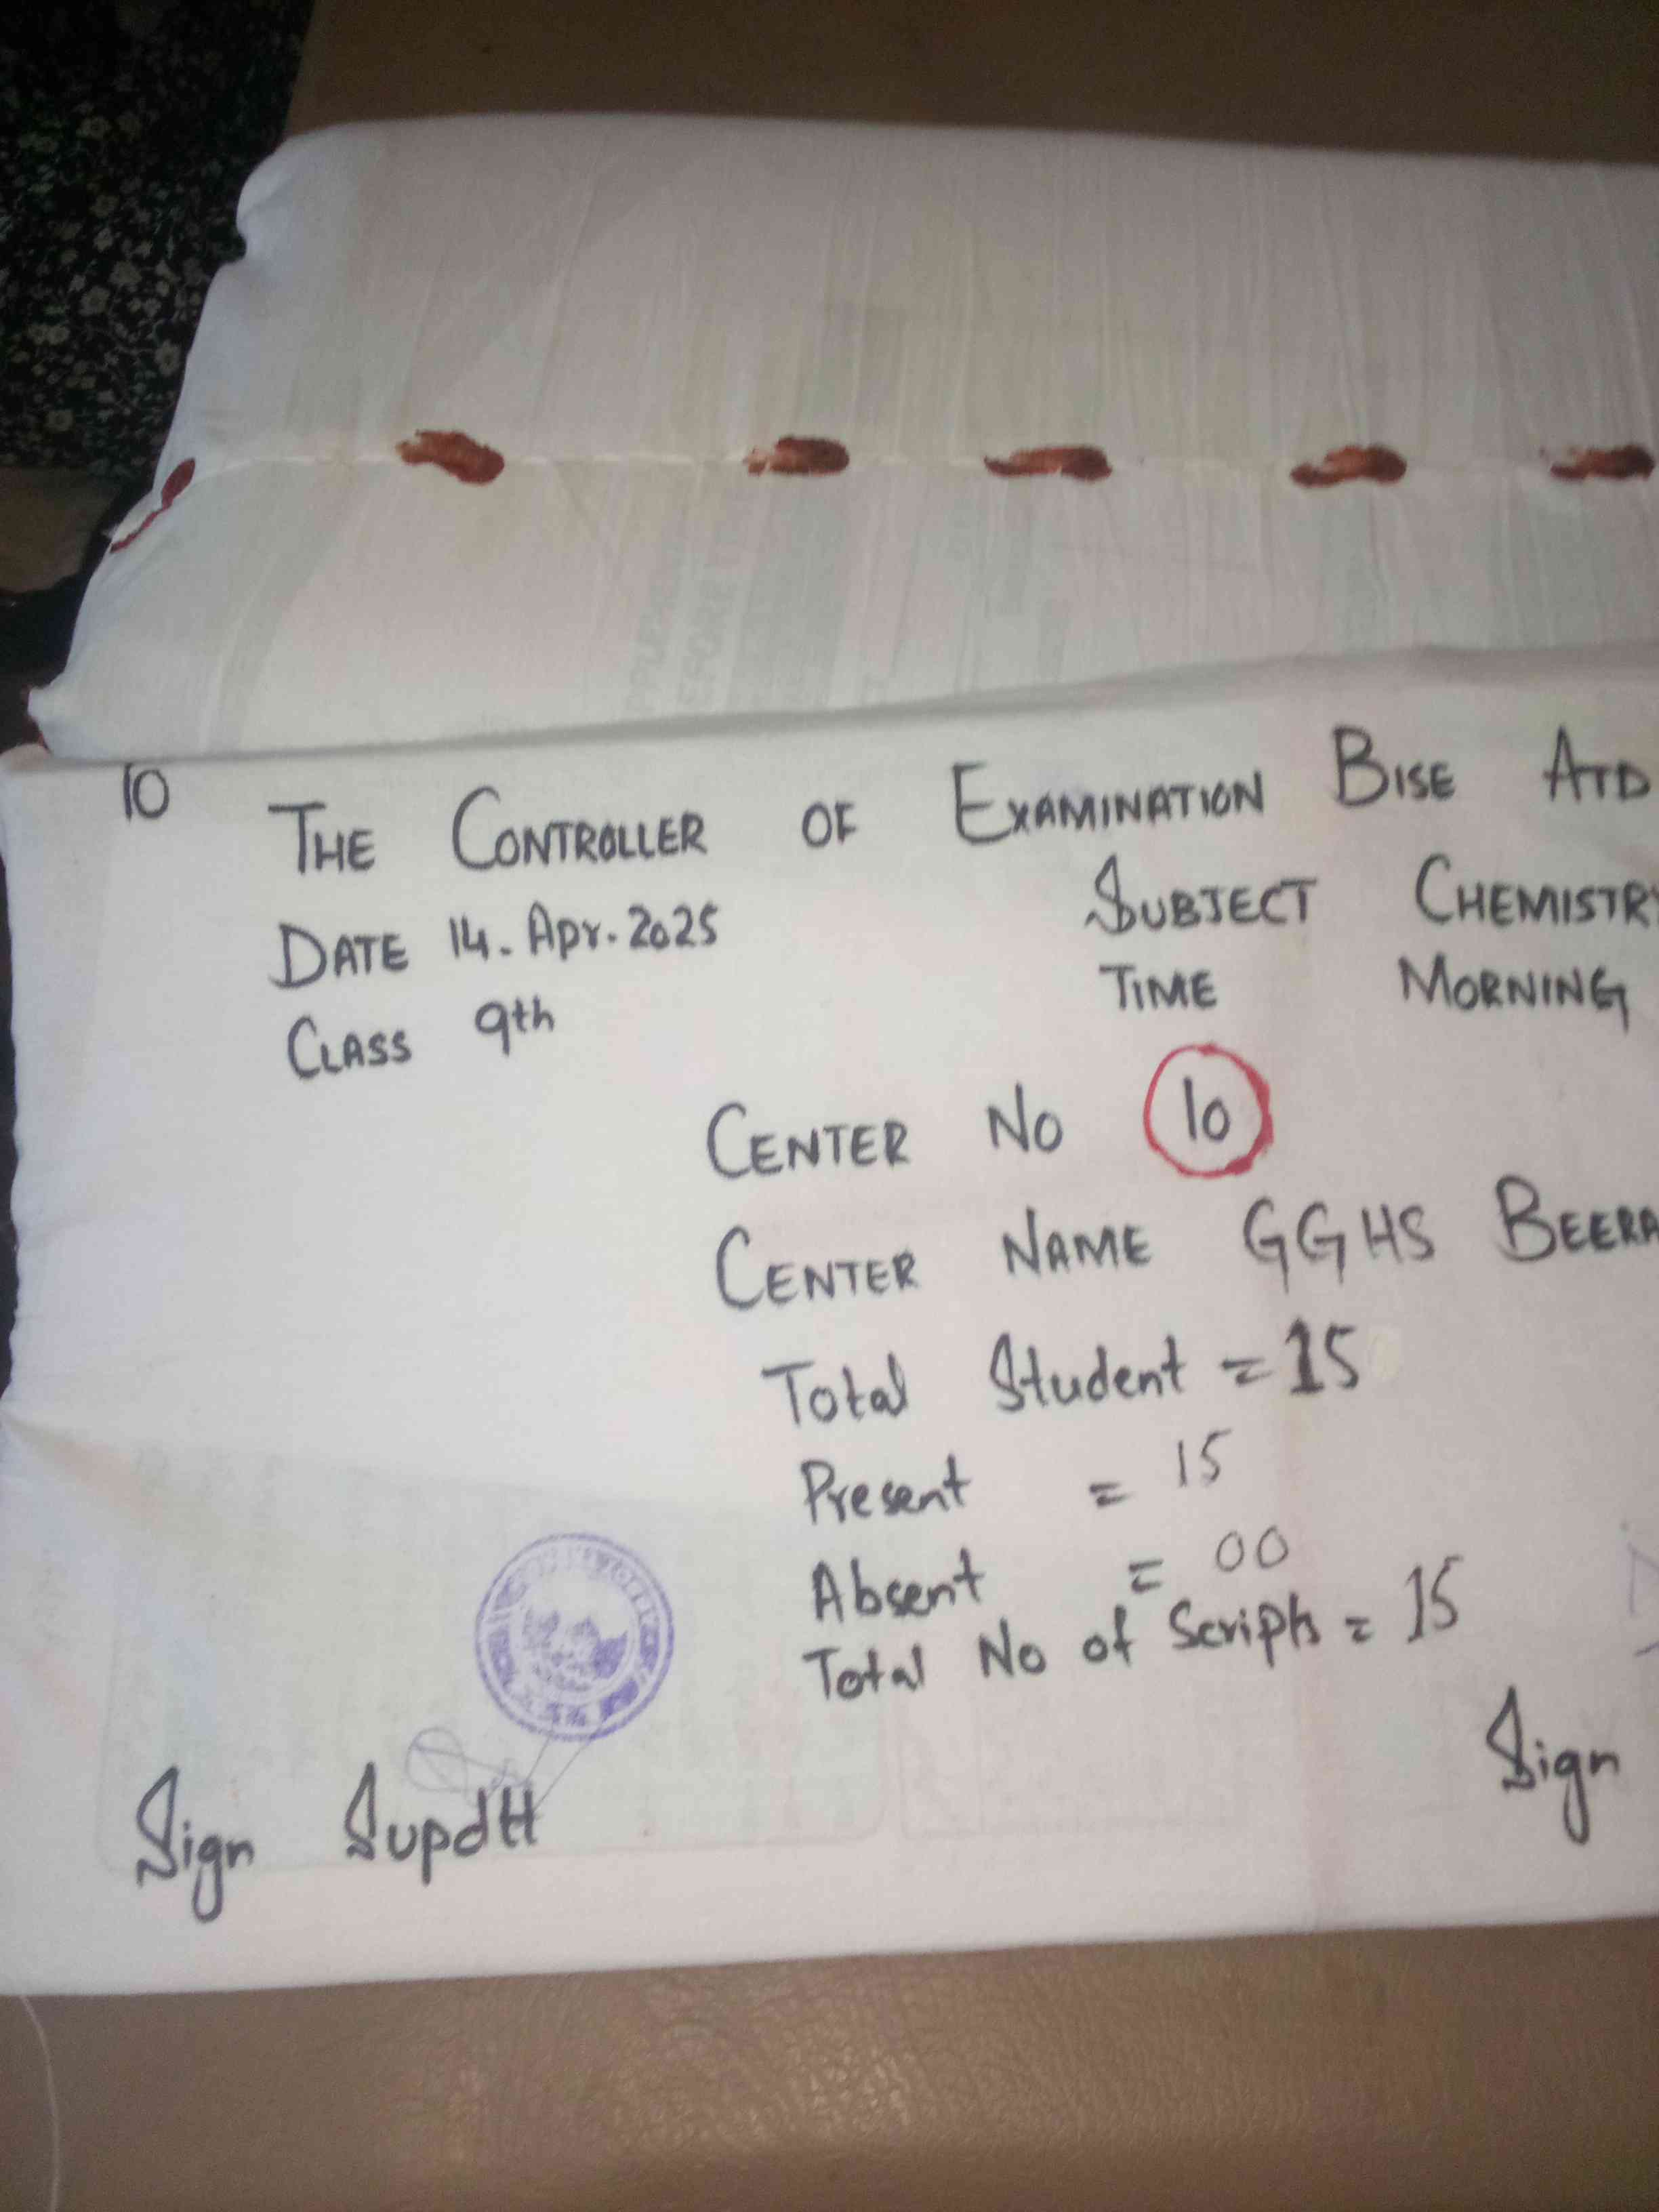 10
THE CONTROLLER OF EXAMINATION BISE ATD
DATE 14. Apr. 2025 SUBJECT CHEMISTRY
CLASS 9th TIME MORNING
CENTER NO 10
CENTER NAME GGHS BEERA
Total Student = 15
Present = 15
Absent = 00
Total No of Scripts = 15
Sign Supdtt Sign